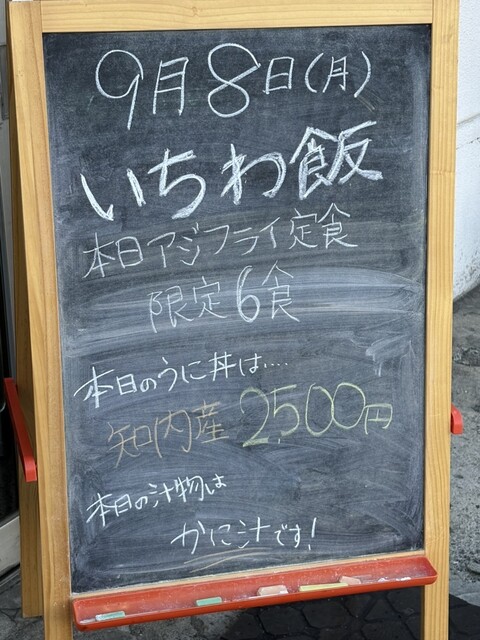 9月8日(月)
いちわ飯
本日アジフライ定食
限定6食
本日のうに丼は....
知内産 2,500円
本日の汁物は
かに汁です!